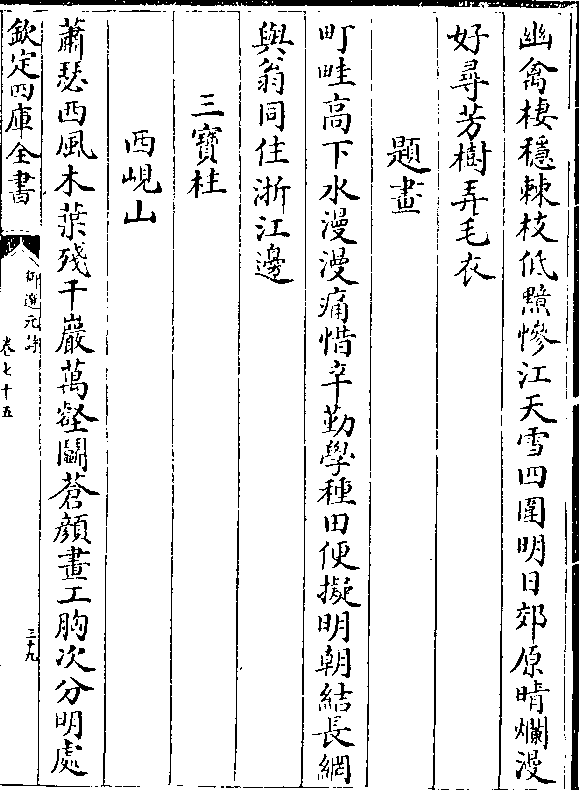 幽禽棲穩棘枝低黯慘江天雪四圍明日郊原晴爛漫
好尋芳樹弄毛衣
題畫
町畦高下水漫漫痛惜辛勤學種田便擬明朝結長網
與翁同住浙江邊
三寶桂
西峴山
蕭瑟西風木葉殘千巖萬壑鬭蒼顔畫工胸次分明處
欽定四庫全書
御選元詩
卷七十五
三十九